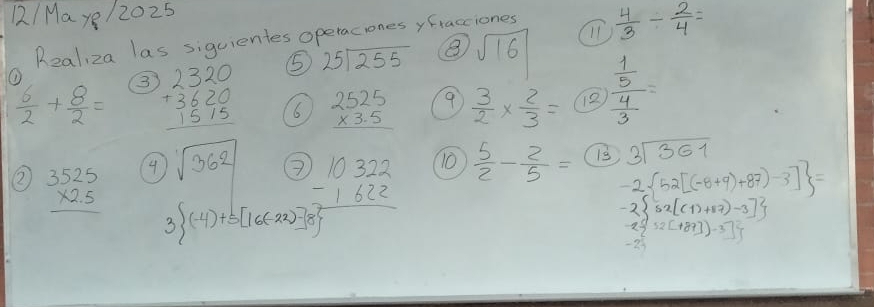 12/Mayo/2025
Realiza las siguientes operaciones y fracciones
① 6/2 + 8/2 =
② 3525
×2.5
③ 2320
+3620
1515
④ √362
⑤ 25⟌255
⑥ 2525
×3.5
⑦ 10 322
- 1 622
⑧ √16
⑨ 3/2 × 2/3 =
⑩ 5/2 - 2/5 =
⑪ 4/3 ÷ 2/4 =
⑫ 1/5 / 4/3 =
⑬ 3⟌361
3{(-4)+5[16(-22)-]8}
-2{52[(-8+9)+87)-3]}=
-2{52[(1)+87)-3]}
-2{52[+87])-3]}
-2{